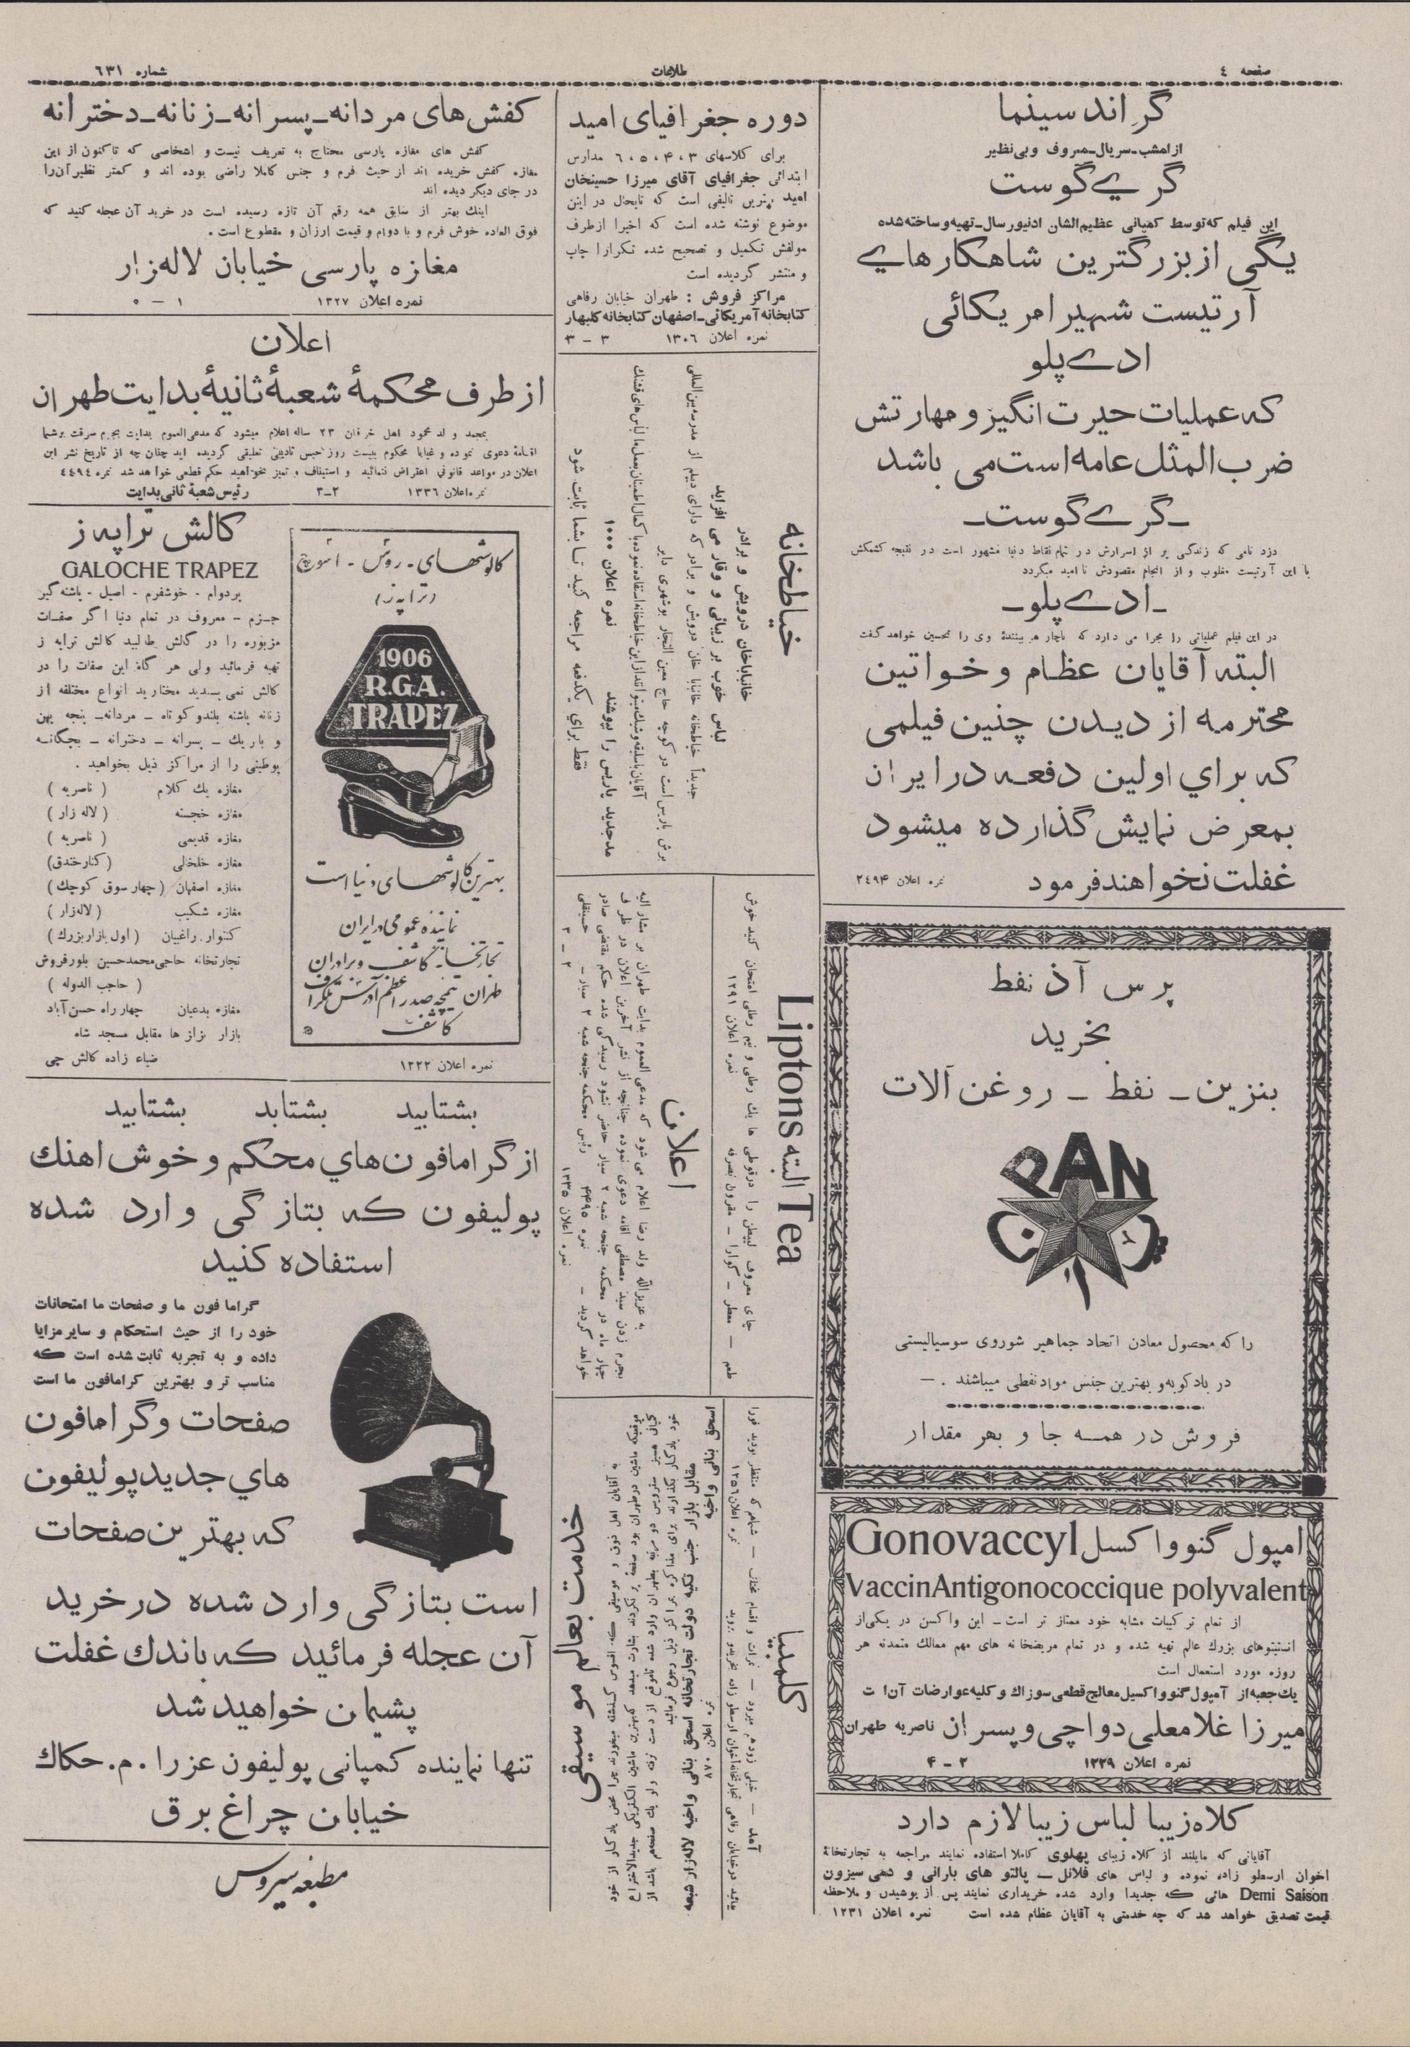 صفحه ٤
طلاعات
شماره ٦٣١
گراند سینما
از امشب ـ سریال ـ معروف و بی نظیر
گری گوست
این فیلم که توسط کمپانی عظیم الشان ادنیورسال ـ تهیه و ساخته شده
یکی از بزرگترین شاهکارهای
آرتیست شهیر امریکائی
ادی پلو
که عملیات حیرت انگیز و مهارتش
ضرب المثل عامه است می باشد
ـ گری گوست ـ
دزد نامی که زندگی پر از اسرارش در تمام نقاط دنیا مشهور است در نتیجه کشمکش
با این آرتیست مغلوب و از انجام مقصودش نا امید میگردد
ـ ادی پلو ـ
در این فیلم عملیاتی را مجرا می دارد که ناچار هر بینندهٔ وی را تحسین خواهد گفت
البته آقایان عظام و خواتین
محترمه از دیدن چنین فیلمی
که برای اولین دفعه در ایران
بمعرض نمایش گذارده میشود
غفلت نخواهند فرمود
نمره اعلان ۲۴۹۴
پرس آذ نفط
بخرید
بنزین ـ نفط ـ روغن آلات
PAN
را که محصول معادن اتحاد جماهیر شوروی سوسیالیستی
در بادکوبه و بهترین جنس مواد نفطی میباشند . ـ
فروش در همه جا و بهر مقدار
امپول گنوواکسل Gonovaccyl
Vaccin Antigonococcique polyvalent
از تمام ترکیبات مشابه خود ممتاز تر است ـ این واکسن در یکی از
انستیتوهای بزرك عالم تهیه شده و در تمام مریضخانه های مهم ممالك متمدنه هر
روزه مورد استعمال است
یك جعبه از آمپول گنوواکسیل معالج قطعی سوزاك و کلیه عوارضات آن است
میرزا غلامعلی دواچی و پسران ناصریه طهران
نمره اعلان ۱۲۲۹ ۲ ـ ۴
کلاه زیبا لباس زیبا لازم دارد
آقایانی که مایلند از کلاه زیبای پهلوی کاملا استفاده نمایند مراجعه به تجارتخانهٔ
اخوان ارسطو زاده نموده و لباس های فلانل ـ پالتو های بارانی و دمی سیزون
Demi Saison هائی که جدیدا وارد شده خریداری نمایند پس از پوشیدن و ملاحظه
قیمت تصدیق خواهند شد که چه خدمتی به آقایان عظام شده است نمره اعلان ۱۲۳۱
دوره جغرافیای امید
برای کلاسهای ۳ ، ۴ ، ۵ ، ٦ مدارس
ابتدائی جغرافیای آقای میرزا حسینخان
امید بهترین تالیفی است که تابحال در این
موضوع نوشته شده است که اخیرا از طرف
مولفش تکمیل و تصحیح شده تکرارا چاپ
و منتشر گردیده است
مراکز فروش : طهران خیابان رفاهی
کتابخانه آمریکائی ـ اصفهان کتابخانه گلبهار
نمره اعلان ۱۳۰٦ ۳ ـ ۳
خیاطخانه
خانباباخان درویش و برادر
لباس خوب بر زیبائی و وقار می افزاید
جدیداً خیاطخانه خانبابا خان درویش و برادر که دارای دیپلم از مدرسه بین المللی
برش پاریس است در کوچه حاج معین التجار بوشهری دایر
مد جدید پاریس را بپوشند نمره اعلان ۱۰۰۰
فقط برای یکدفعه مراجعه کنید تا بشما ثابت شود
Liptons البته Tea
چای معروف لیپطن را در قوطی ها یك رطلی و نیم رطلی امتحان کنید خوش
طعم ـ معطر ـ گوارا ـ مقرون بصرفه نمره اعلان ۱۲۹۱
اعلان
به عزیزالله ولد رضا اعلام می شود که مدعی العموم بدایت طهران بر مشار الیه
بجرم زدن سید مصطفی اقامه دعوی نموده چنانچه از نشر آخرین اعلان در ظرف
چهار ماه در محکمه جنحه شعبه ۲ سیار حاضر نشود رسیدگی شده حکم مقتضی صادر
خواهد گردید ـ نمره ۴۴۹۵ رئیس محکمه جنحه شعبه ۲ سیار ـ حسینقلی
نمره اعلان ۱۳۳۵ ۲ ـ ۳
کلمبیا
خدمت بعالم موسیقی
مقابل بازار جنب تکیه دولت تجارتخانه اسحق بنانی واخیه لاله زار شعبه
اسحق بنانی واخیه
نمره اعلان ۸۷۰
کفش های مردانه ـ پسرانه ـ زنانه ـ دخترانه
کفش های مغازه پارسی محتاج به تعریف نیست و اشخاصی که تاکنون از این
مغازه کفش خریده اند از حیث فرم و جنس کاملا راضی بوده اند و کمتر نظیر آن را
در جای دیگر دیده اند
اینك بهتر از سابق همه رقم آن تازه رسیده است در خرید آن عجله کنید که
فوق العاده خوش فرم و با دوام و قیمت ارزان و مقطوع است .
مغازه پارسی خیابان لاله زار
نمره اعلان ۱۳۲۷ ۱ ـ ۵
اعلان
از طرف محکمهٔ شعبهٔ ثانیهٔ بدایت طهران
بمحمد ولد محمود اهل خرقان ۲۳ ساله اعلام میشود که مدعی العموم بدایت بجرم سرقت برشما
اقامهٔ دعوی نموده و غیابا محکوم به بیست روز حبس تادیبی تعلیقی گردیده اید چنان چه از تاریخ نشر این
اعلان در مواعد قانونی اعتراض ننمائید و استیناف و تمیز نخواهید حکم قطعی خواهد شد نمره ۴۴۹۴
نمره اعلان ۱۳۳٦ ۲ ـ ۳ رئیس شعبهٔ ثانی بدایت
کالش تراپه ز
GALOCHE TRAPEZ
پردوام - خوشفرم - اصیل - پاشنه گیر
جزم - معروف در تمام دنیا اگر صفات
مزبوره را در گالش طالبید کالش تراپه ز
تهیه فرمائید ولی هر گاه این صفات را در
کالش نمی پسندید مختارید انواع مختلفه از
زنانه پاشنه بلند و کوتاه ـ مردانه ـ پنجه پهن
و باریك ـ پسرانه ـ دخترانه ـ بچگانه
پوطینی را از مراکز ذیل بخواهید .
مغازه یك کلام ( ناصریه )
مغازه خجسته ( لاله زار )
مغازه قدیمی ( ناصریه )
مغازه خلخالی ( کنار خندق )
مغازه اصفهان ( چهار سوق کوچك )
مغازه شکیب ( لاله زار )
کنتوار راغیان ( اول بازار بزرك )
تجارتخانه حاجی محمدحسین بلورفروش
( حاجب الدوله )
مغازه بدعیان چهار راه حسن آباد
بازار بزاز ها مقابل مسجد شاه
ضیاء زاده کالش چی
کالوشهای - روش - اشورپنج
( تراپه ز )
1906
R.G.A.
TRAPEZ
بهترین کالوشهای دنیا است
نماینده عمومی در ایران
تجارتخانه کاشف و برادران
طهران تیمچه صدر اعظم آدرس تلگرافی
کاشف
نمره اعلان ۱۲۲۲
بشتابید بشتابد بشتابید
از گرامافون های محکم و خوش اهنك
پولیفون که بتازگی وارد شده
استفاده کنید
گراما فون ما و صفحات ما امتحانات
خود را از حیث استحکام و سایر مزایا
داده و به تجربه ثابت شده است که
مناسب تر و بهترین گرامافون ما است
صفحات و گرامافون
های جدید پولیفون
که بهترین صفحات
است بتازگی وارد شده در خرید
آن عجله فرمائید که باندك غفلت
پشیمان خواهید شد
تنها نماینده کمپانی پولیفون عزرا . م . حکاك
خیابان چراغ برق
مطبعه سیروس